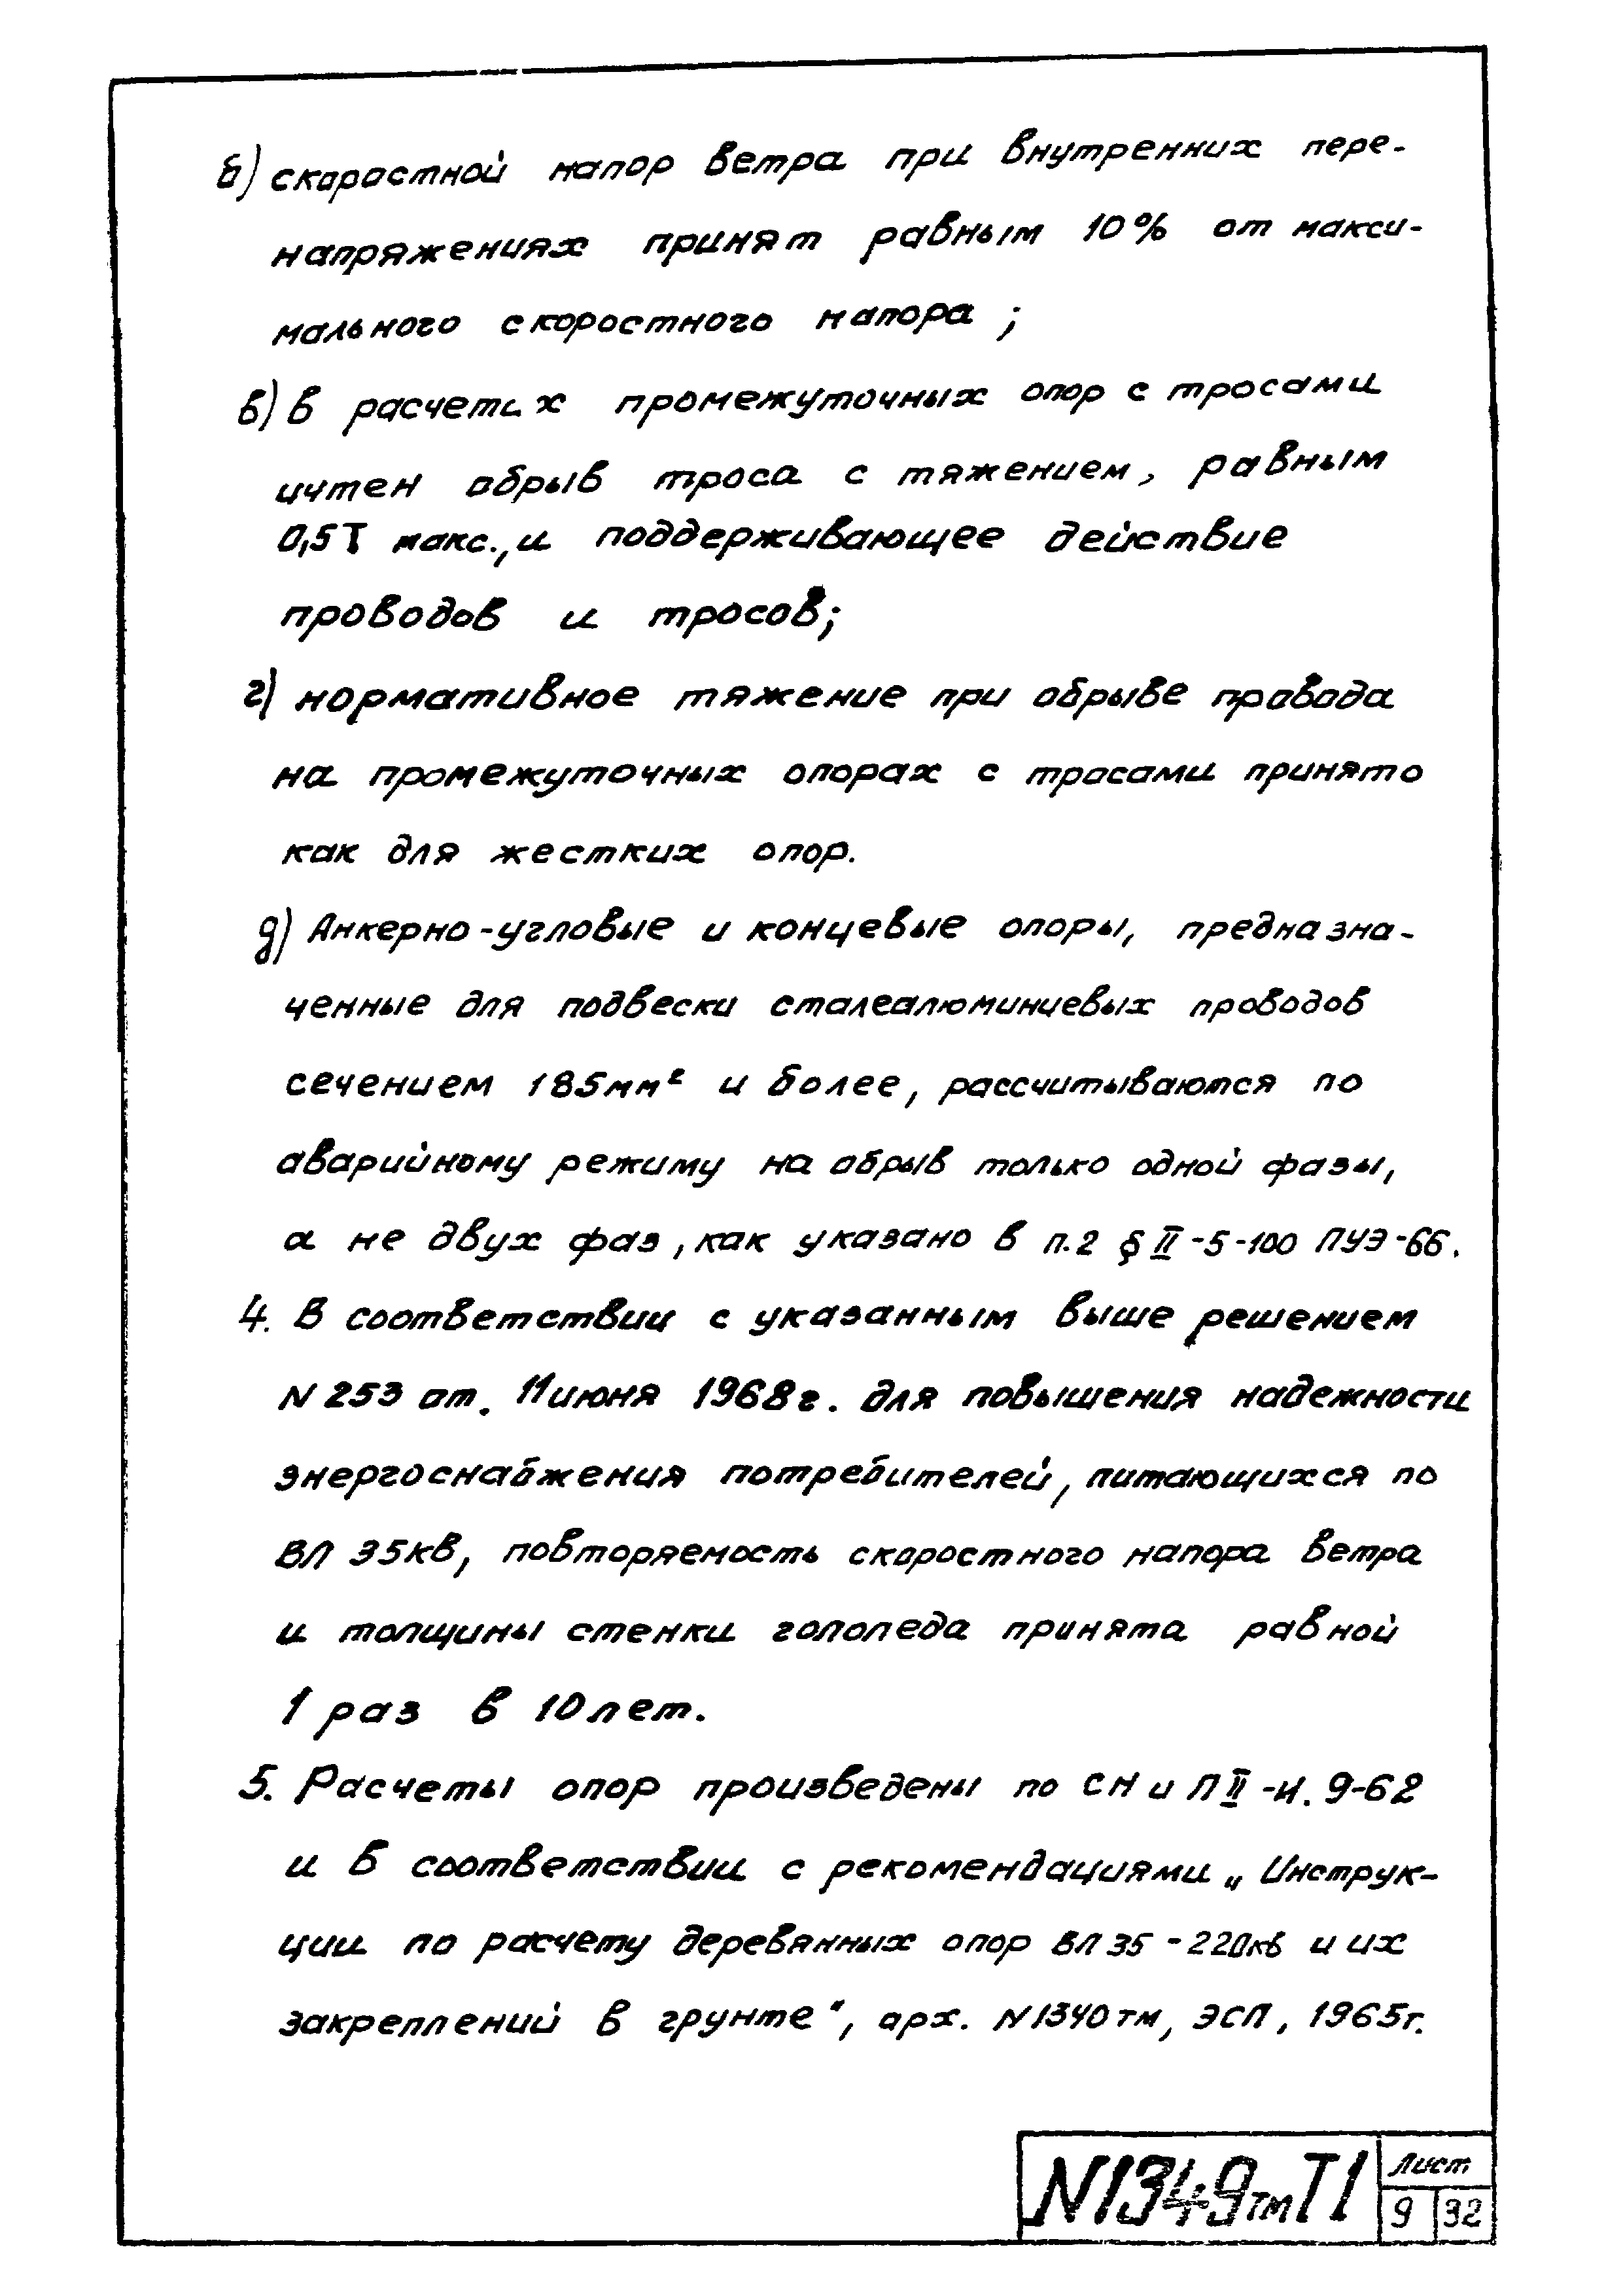 б) скоростной напор ветра при внутренних пере-
напряжениях принят равным 10% от макси-
мального скоростного напора;
в) в расчетах промежуточных опор с тросами
учтен обрыв троса с тяжением, равным
0,5Т макс., и поддерживающее действие
проводов и тросов;
г) нормативное тяжение при обрыве провода
на промежуточных опорах с тросами принято
как для жестких опор.
д) Анкерно-угловые и концевые опоры, предназна-
ченные для подвески сталеалюминиевых проводов
сечением 185мм² и более, рассчитываются по
аварийному режиму на обрыв только одной фазы,
а не двух фаз, как указано в п.2 § II-5-100 ПУЭ-66.
4. В соответствии с указанным выше решением
N 253 от. 11 июня 1968г. для повышения надежности
энергоснабжения потребителей, питающихся по
ВЛ 35кв, повторяемость скоростного напора ветра
и толщины стенки гололеда принята равной
1 раз в 10 лет.
5. Расчеты опор произведены по СН и П II-И. 9-62
и в соответствии с рекомендациями „Инструк-
ции по расчету деревянных опор ВЛ 35-220кв и их
закреплений в грунте", арх. N1340тм, ЭСП, 1965г.
N1349тмТ1
Лист
9 32